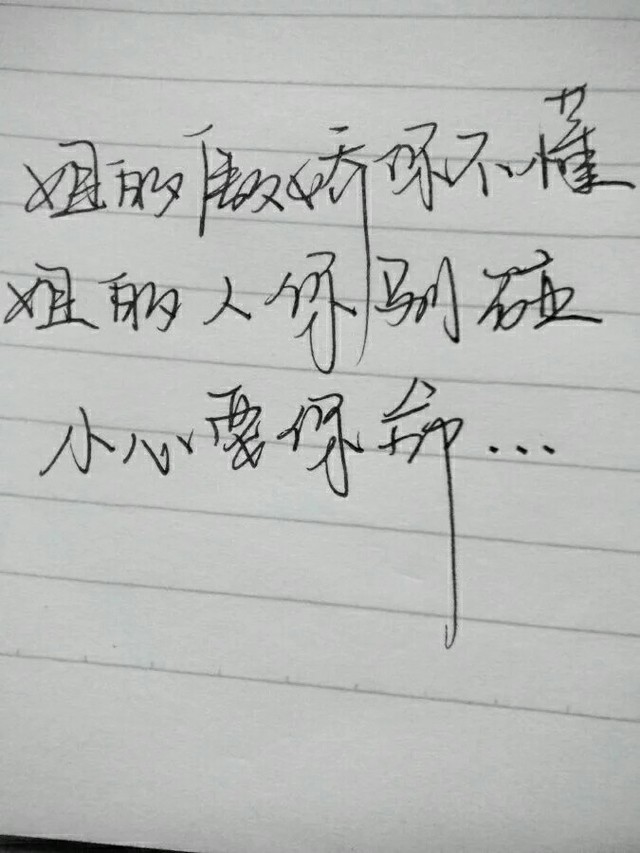 姐的傲娇你不懂
姐的人你别碰
小心要你命...